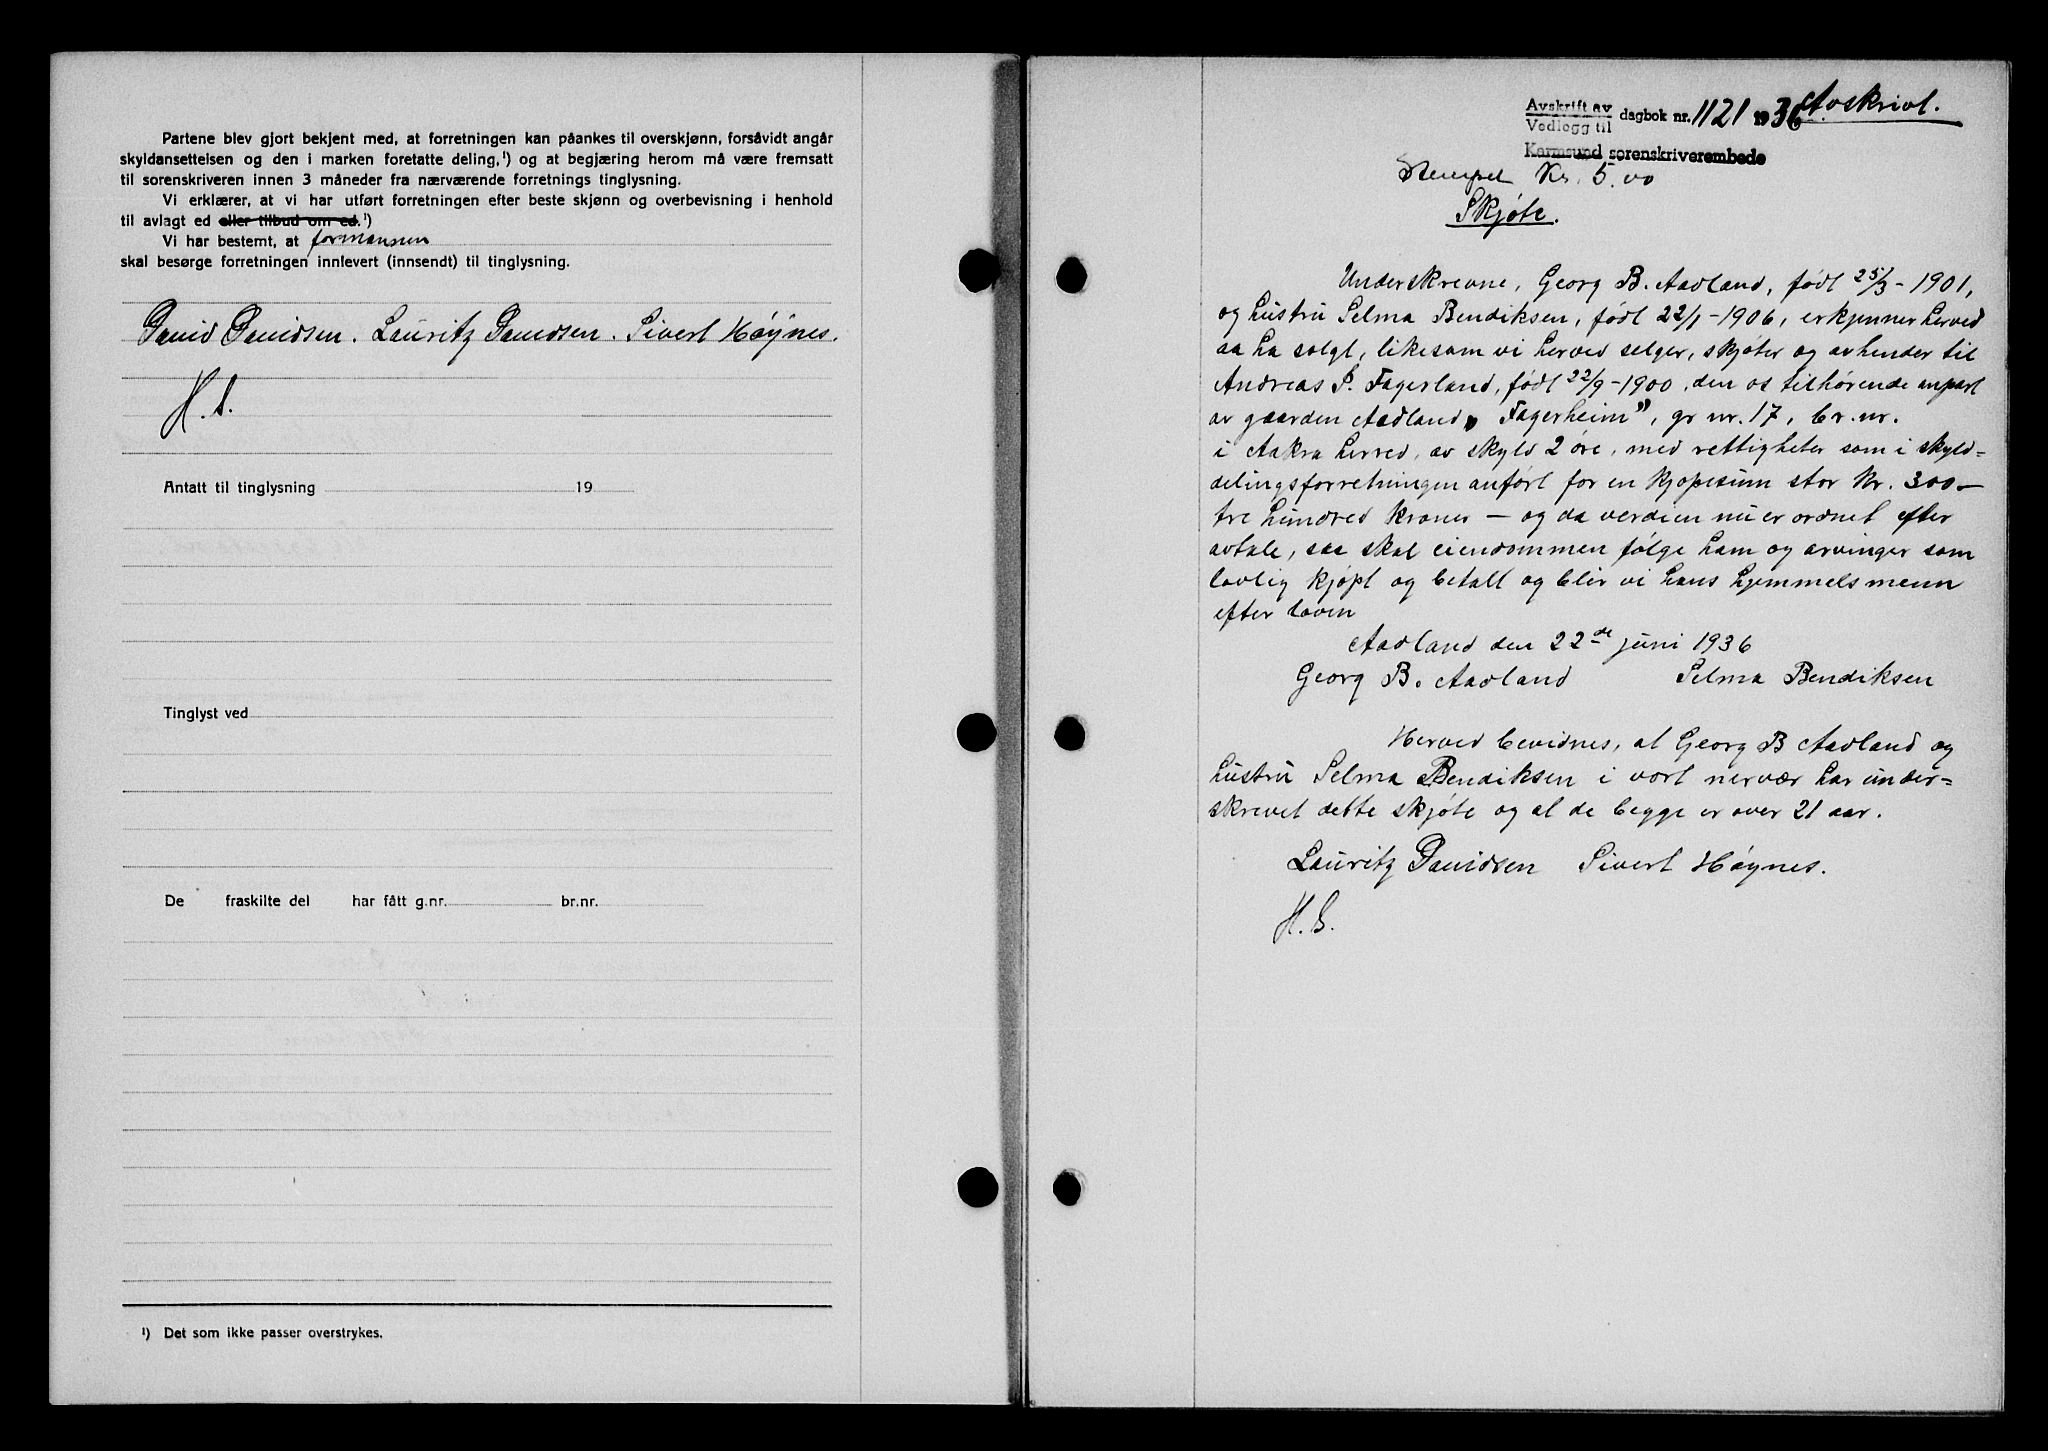 Partene blev gjort bekjent med, at forretningen kan påankes til overskjønn, forsåvidt angår
skyldansettelsen og den i marken foretatte deling,¹) og at begjæring herom må være fremsatt
til sorenskriveren innen 3 måneder fra nærværende forretnings tinglysning.
Vi erklærer, at vi har utført forretningen efter beste skjønn og overbevisning i henhold
til avlagt ed eller tilbud om ed.¹)
Vi har bestemt, at formannen
skal besørge forretningen innlevert (innsendt) til tinglysning.
David Davidsen. Lauritz Davidsen. Sivert Høynes.
Antatt til tinglysning 19
Tinglyst ved
De fraskilte del har fått g.nr. br.nr.
¹) Det som ikke passer overstrykes.
Avskrift av
Vedlegg til dagbok nr. 1121 1936 Avskrivt.
Karmsund sorenskriverembede
Stempel Kr. 5.00
Skjøte.
Underskrevne, Georg B. Aadland, født 25/3-1901,
og hustru Selma Bendiksen, født 22/1-1906, erkjenner herved
aa ha solgt, likesom vi herved selger, skjøter og avhender til
Andreas S. Fagerland, født 22/9-1900, den os tilhørende anpart
av gaarden Aadland, Fagerheim", gr nr. 17, br. nr.
i Aakra herred, av skyld 2 øre, med rettigheter som i skyld=
delingsforretningen anført for en kjøpesum stor kr. 300-
tre hundred kroner - og da verdien nu er ordnet efter
avtale, saa skal eiendommen følge ham og arvinger som
lovlig kjøpt og betalt og blir vi hans hjemmelsmenn
efter loven
Aadland den 22de juni 1936
Georg B. Aadland Selma Bendiksen
Herved bevidnes, at Georg B Aadland og
hustru Selma Bendiksen i vort nervær har under=
skrevet dette skjøte og at de begge er over 21 aar.
Lauritz Davidsen Sivert Høynes.